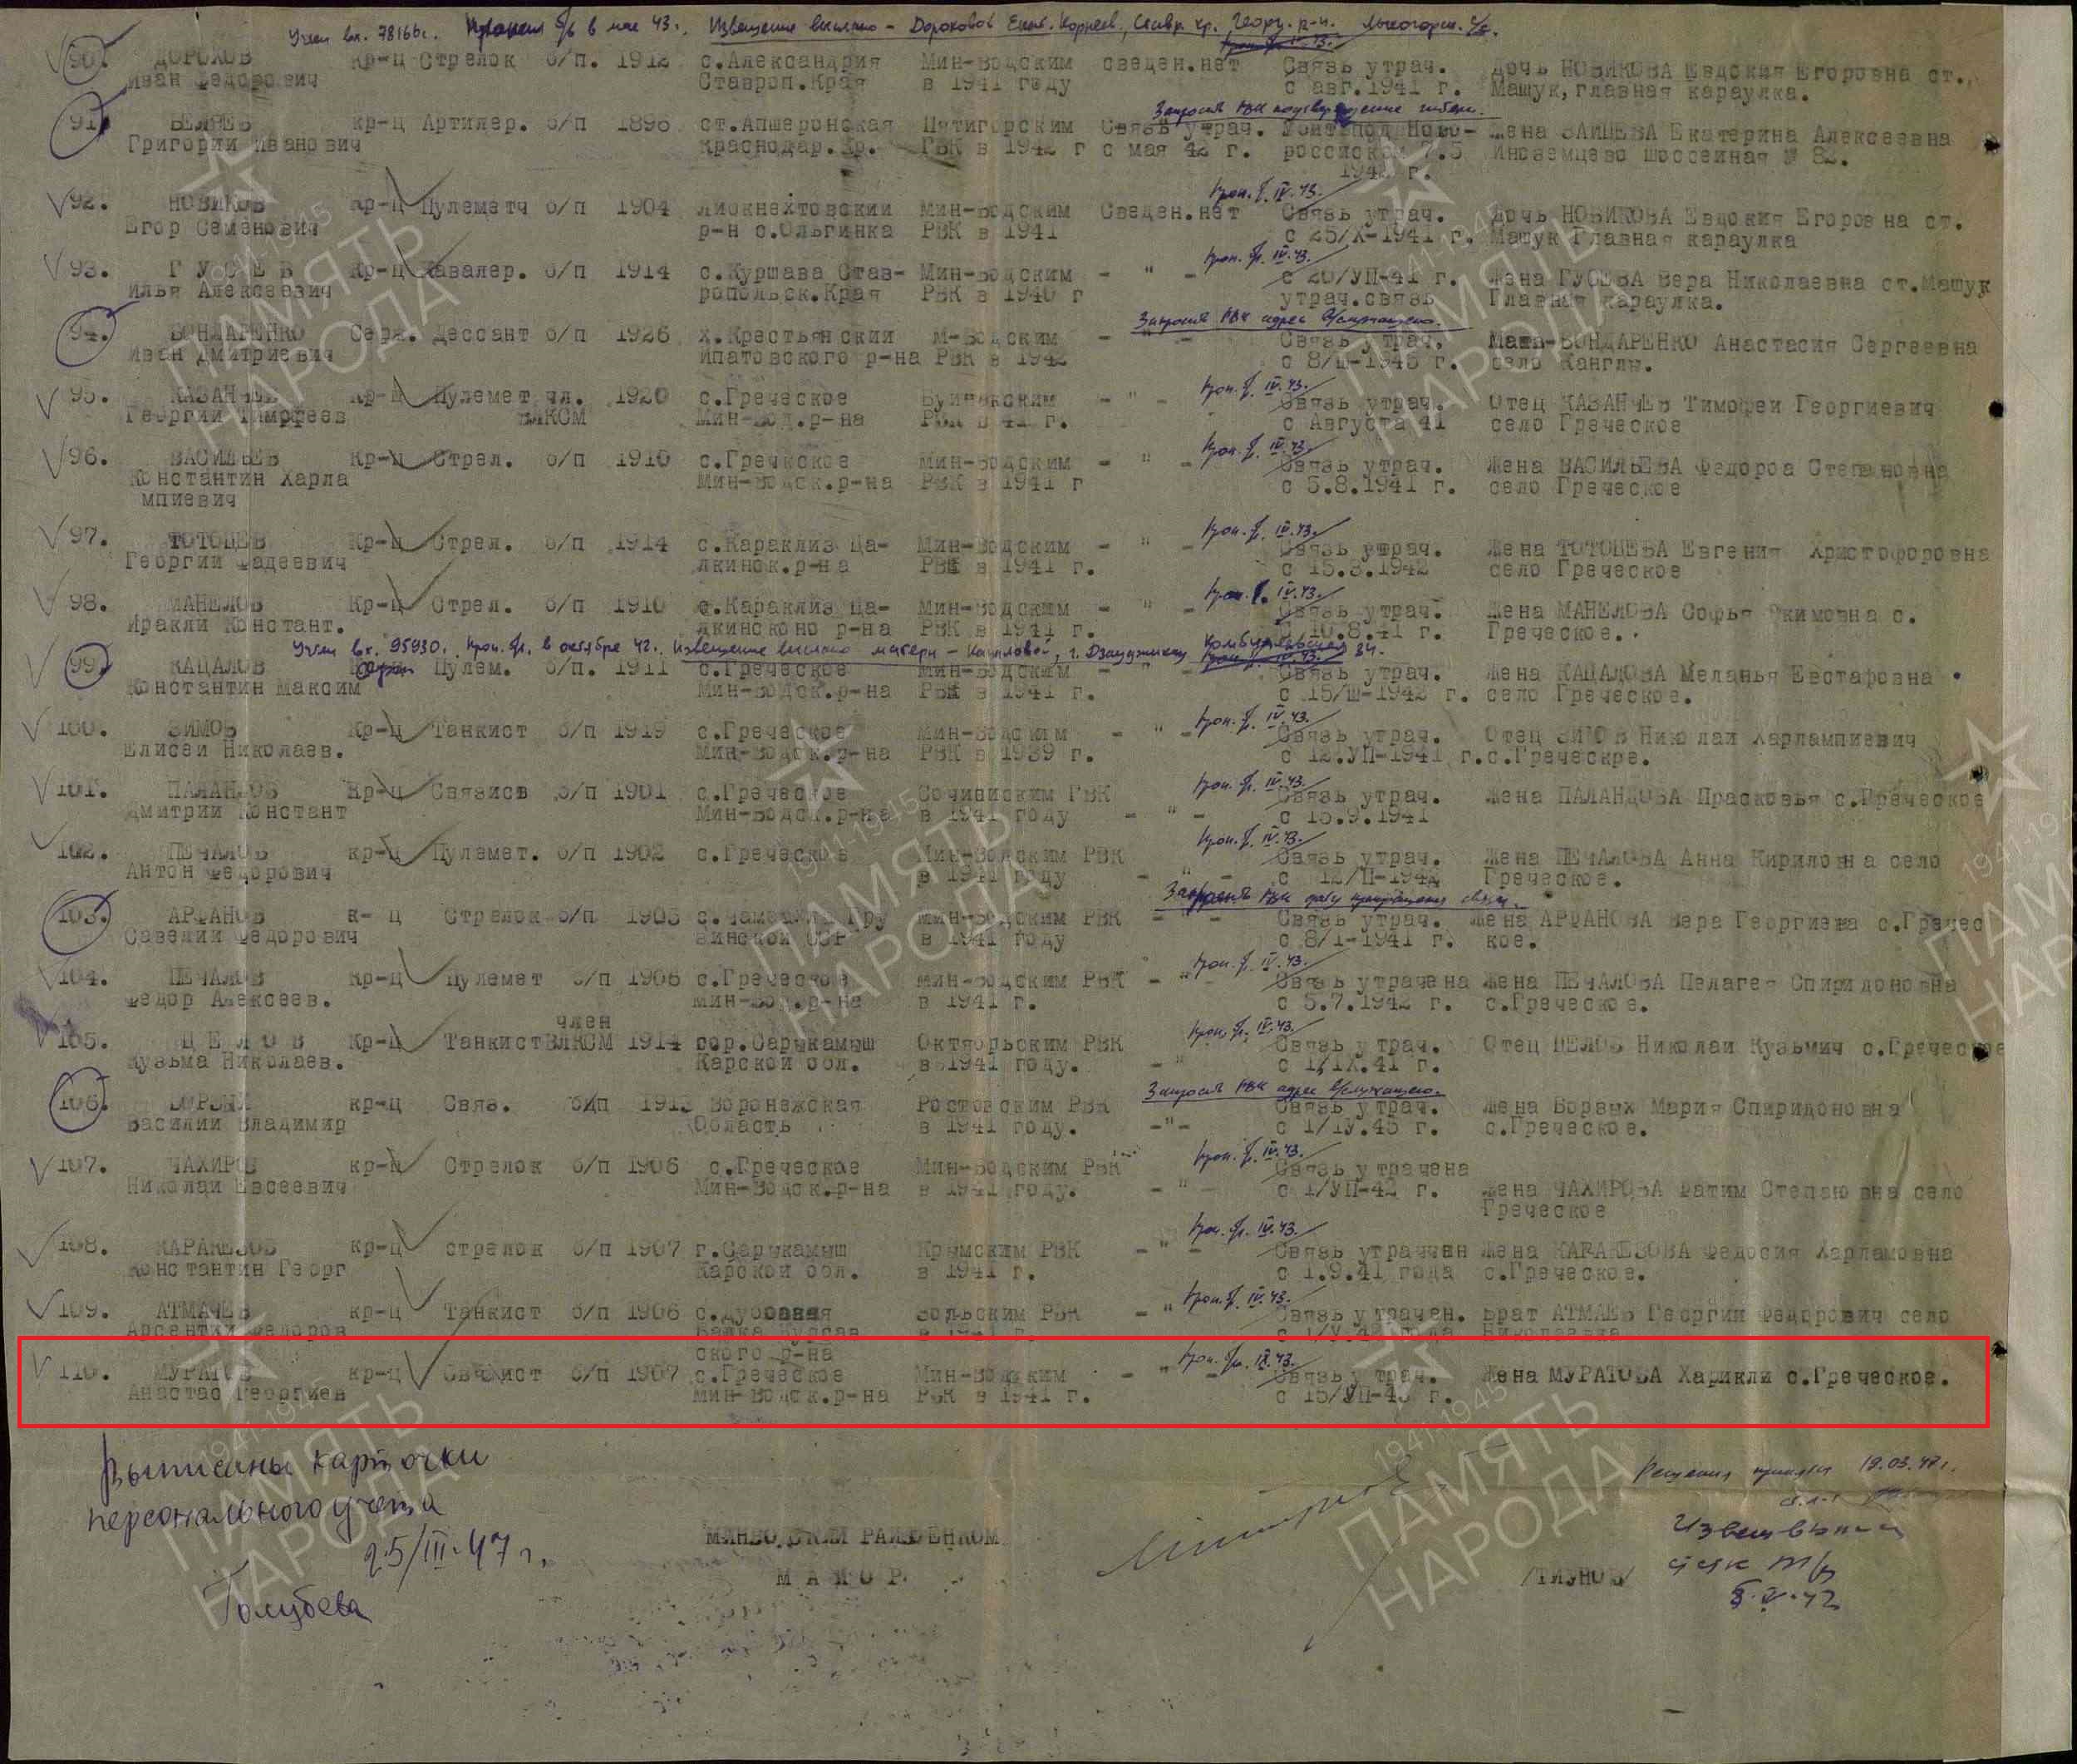 Учтен вх. 78166с. Пропал б/в в мае 43г. Извещение выслано – Дороховой Екат. Корнеев., Ставр. кр., Георг. р-н. Лысогорск. с/с.
90. ДОРОХОВ кр-ц Стрелок б/п. 1912 с.Александрия Мин-Водским сведен.нет Связь утрач. Дочь НОВИКОВА Евдокия Егоровна ст.
Иван Федорович Ставроп.Края в 1941 году с авг.1941 г. Машук, главная караулка.
Запросить РВК подтверждение гибели.
91. БЕЛЯЕВ кр-ц Артилер. б/п 1896 ст.Апшеронская Пятигорским Связь утрач. Убит под Ново- Жена ЗАЙЦЕВА Екатерина Алексеевна
Григорий Иванович Краснодар.Кр. ГВК в 1942 г с мая 42 г. российском 7.5 Иноземцево Шоссейная № 82.
1942 г.
Проп. б/в. IV.43.
92. НОВИКОВ Кр-ц Пулеметч б/п 1904 Либкнехтовский Мин-Водским Сведен.нет Связь утрач. Дочь НОВИКОВА Евдокия Егоровна ст.
Егор Семенович р-н с.Ольгинка РВК в 1941 с 25/Х-1941 г. Машук Главная караулка
Проп. б/в. IV.43.
93. ГУБЕВ Кр-ц Кавалер. б/п 1914 с.Куршава Став- Мин-Водским - " - с 20/УП-41 г. Жена ГУБЕВА Вера Николаевна ст.Машук
Илья Алексеевич ропольск.Края РВК в 1940 г утрач.связь Главная караулка.
Запросить РВК адрес в/служащего.
94. БОНДАРЕНКО Серж. Дессант б/п 1926 х.Крестьянский М-Водским - " - Связь утрач. Мать-БОНДАРЕНКО Анастасия Сергеевна
Иван Дмитриевич Ипатовского р-на РВК в 1942 с 8/Ш-1945 г. село Канглы.
Проп. б/в. IV.43.
95. КАЗАНЧЕВ Кр-ц Пулемет чл. 1920 с.Греческое Буйнакским - " - Связь утрач. Отец КАЗАНЧЕВ Тимофей Георгиевич
Георгий Тимофеев ВЛКСМ Мин-Вод.р-на РВК в 41 г. с Августа 41 село Греческое
Проп. б/в. IV.43.
96. ВАСИЛЬЕВ Кр-ц Стрел. б/п 1910 с.Греческое Мин-Водским - " - Связь утрач. Жена ВАСИЛЬЕВА Федороа Степановна
Константин Харла Мин-Водск.р-на РВК в 1941 г с 5.8.1941 г. село Греческое
мпиевич
Проп. б/в. IV.43.
97. ТОТОЦЕВ Кр-ц Стрел. б/п 1914 с.Караклиз Ца- Мин-Водским - " - Связь утрач. Жена ТОТОЦЕВА Евгения Христофоровна
Георгий Фадеевич лкинск.р-на РВК в 1941 г. с 15.3.1942 село Греческое
Проп. б/в. IV.43.
98. МАНЕЛОВ Кр-ц Стрел. б/п 1910 с.Караклиз Ца- Мин-Водским - " - Связь утрач. Жена МАНЕЛОВА Софья Якимовна с.
Иракли Констант. лкинсконо р-на РВК в 1941 г. с 10.8.41 г. Греческое.
Учтен вх. 95930. Проп. б/в. в октябре 42г. Извещение выслано матери – Кацаловой, г. Дзауджикау 34.
99. КАЦАЛОВ Пулем. б/п. 1911 с.Греческое Мин-Водским - " - Связь утрач. Жена КАЦАЛОВА Меланья Евстафовна
Константин Максим Мин-Водск.р-на РВК в 1941 г. с 15/Ш-1942 г. село Греческое.
Проп. б/в. IV.43.
100. ЗИМОВ Кр-ц Танкист б/п 1919 с.Греческое Мин-Водским - " - Связь утрач. Отец ЗИМОВ Николай Харлампиевич
Елисей Николаев. Мин-Водск.р-на РВК в 1939 г. с 12.УП-1941 г. с.Греческре.
Проп. б/в. IV.43.
101. ПАЛАНДОВ Кр-ц Связисв б/п 1901 с.Греческое Сочинским ГВК Связь утрач. Жена ПАЛАНДОВА Прасковья с.Греческое
Дмитрий Констант Мин-Водск.р-на в 1941 году - " - с 15.9.1941
Проп. б/в. IV.43.
102. ПЕЧАЛОВ кр-ц Пулемет. б/п 1902 с.Греческое Мин-Водским РВК Связь утрач. Жена ПЕЧАЛОВА Анна Кириловна село
Антон Федорович в 1941 году - " - с 12/П-1942 Греческое.
Запросить РВК дату прекращения связи.
103. АРФАНОВ к- ц Стрелок б/п 1903 с. Гру Мин-Водским РВК - " - Связь утрач. Жена АРФАНОВА Вера Георгиевна с.Гречес
Савелий Федорович зинской ССР в 1941 году с 8/1-1941 г. кое.
Проп. б/в. IV.43.
104. ПЕЧАЛОВ Кр-ц Пулемет б/п 1906 с.Греческое Мин-Водским РВК - " - Связь утрачена Жена ПЕЧАЛОВА Пелагея Спиридоновна
Федор Алексеев. Мин-Вод.р-на в 1941 г. с 5.7.1942 г. с.Греческое.
член
Проп. б/в. IV.43.
105. ЦЕЛОВ Кр-ц Танкист ВЛКСМ 1914 гор.Сарыкамыш Октябрьским РВК Связь утрач. Отец ЦЕЛОВ Николай Кузьмич с.Греческое
Кузьма Николаев. Карской обл. в 1941 году. - " с 1/IX.41 г.
Запросить РВК адрес в/служащего.
106. БОРВЫХ кр-ц Связ. б/п 1913 Воронежская Ростовским РВК Связь утрач. Жена Борвых Мария Спиридоновна
Василий Владимир Область в 1941 году. -"- с 1/1У.43 г. с.Греческое.
Проп. б/в. IV.43.
107. ЧАХИРОВ кр-ц Стрелок б/п 1906 с.Греческое Мин-Водским РВК Связь утрачена
Николай Евсеевич Мин-Водск.р-на в 1941 году. - " - с 1/УП-42 г. Жена ЧАХИРОВА Фатим Степановна село
Греческое
Проп. б/в. IV.43.
108. КАРАКЕЗОВ кр-ц стрелок б/п 1907 г.Сарыкамыш Крымским РВК - " - Связь утрачен Жена КАРАКЕЗОВА Федосия Харламовна
Константин Георг Карской обл. в 1941 г. с 1.9.41 года с.Греческое.
Проп. б/в. IV.43.
109. АТМАЧЕВ кр-ц Танкист б/п 1906 с.Дубовая Вольским РВК - " Связь утрачен. Брат АТМАЕВ Георгий Федорович село
Арсентий Федоров Балка в 1941 г. с 1/У.42 года
ского р-на
Проп. б/в. IX.43.
110. МУРАТОВ кр-ц Связист б/п 1907 с.Греческое Мин-Водским - " - Связь утрач. Жена МУРАТОВА Харикли с.Греческое.
Анастас Георгиев Мин-Водск.р-на РВК в 1941 г. с 15/УП-43 г.
Выписаны карточки
персонального учета
25/III-47 г.
Голубева
МИНВОДСКИЙ РАЙВОЕНКОМ
МАЙОР
/ТИУНОВ/
Решения приняты 19.03.47г.
ПАМЯТЬ
НАРОДА
1941-1945